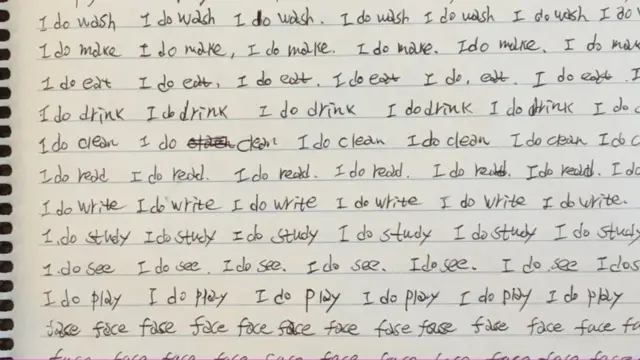 I do wash I do wash I do wash. I do wash I do wash I do wash I do
I do make I do make, I do make. I do make. I do make. I do mak
1 do eat I do eat, I do eat. I do eat I do, eat. I do eat. I
I do drink I do drink I do drink I do drink I do drink I do
I do clean I do clean I do clean I do clean I do clean I do c
I do read I do read. I do read. I do read. I do read. I do read. I do
I do write I do write I do write I do write I do write I do write.
1.do study I do study I do study I do study I do study I do study
1.do see I do see. I do see. I do see. I do see. I do see I do s
I do play I do play I do play I do play I do play I do play
face face face face face face face face face face face face fa
face face face face face face face face face face face